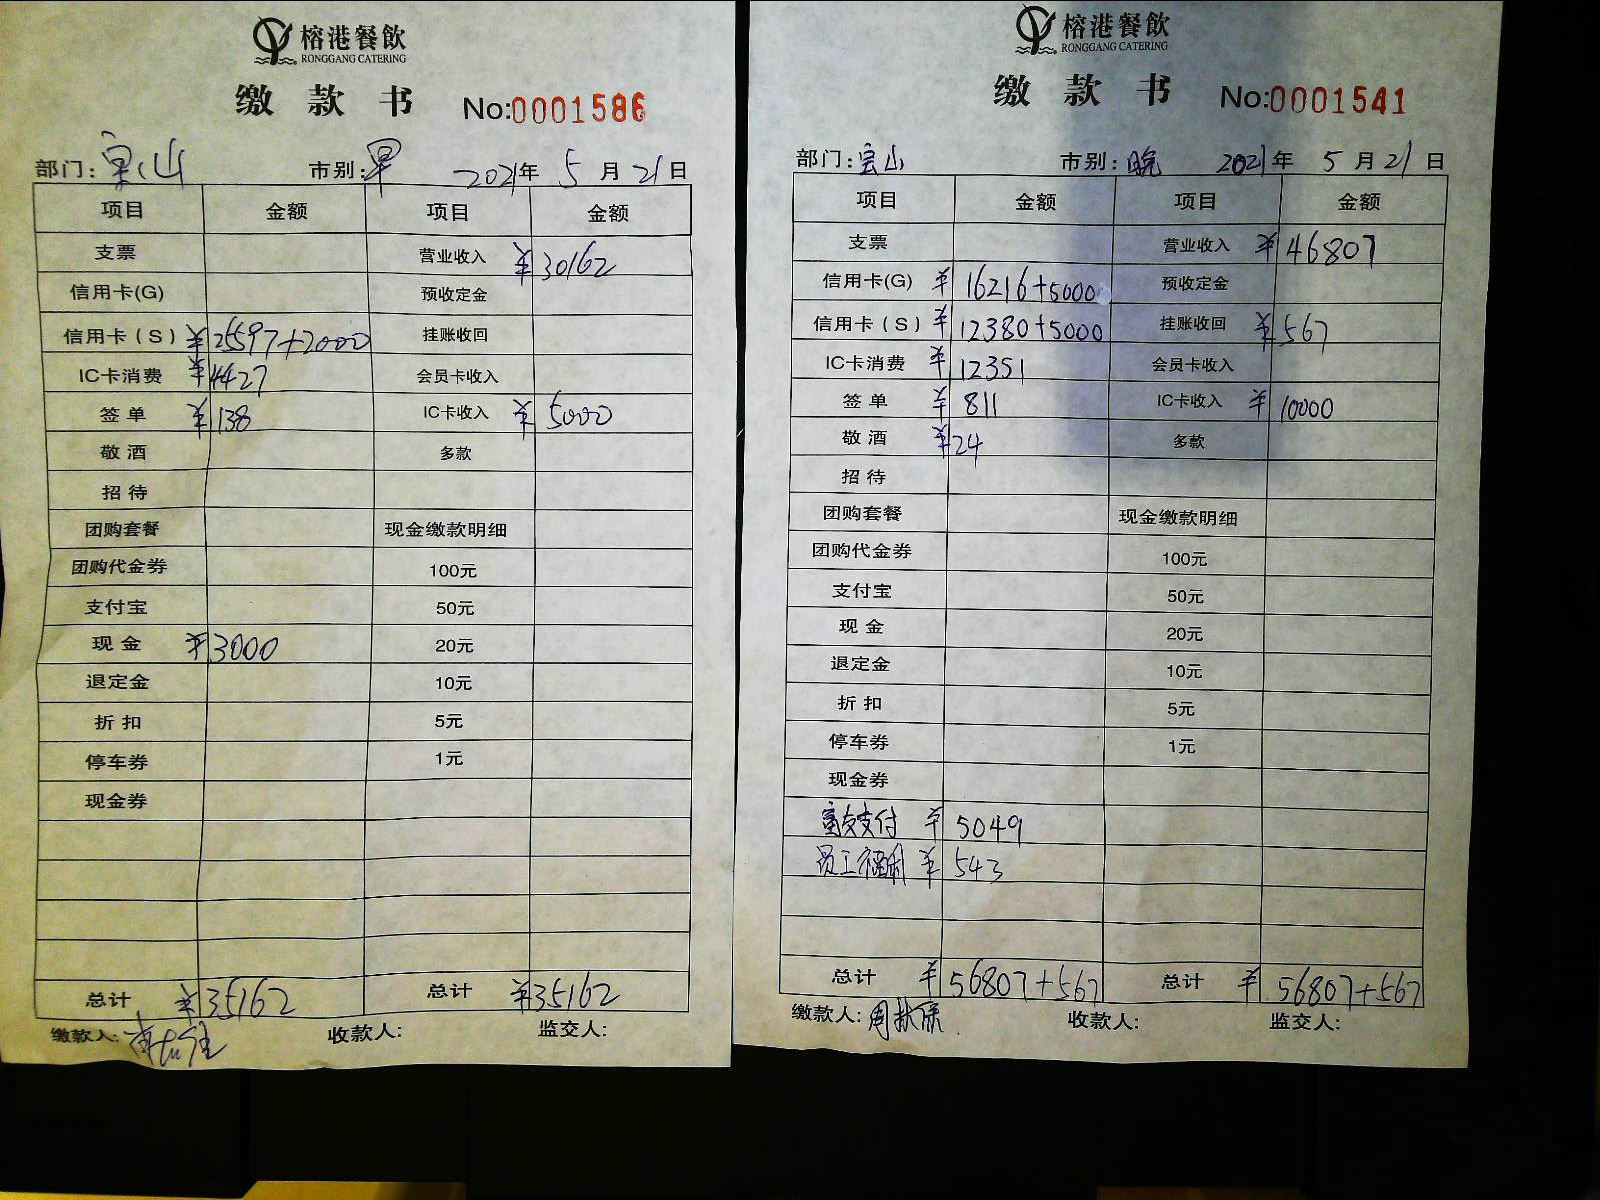 榕港餐飲
RONGGANG CATERING
缴 款 书 No:0001586
部门: 宝山 市别: 早 2021年 5 月 21 日
项目 金额 项目 金额
支票 营业收入 ¥30162
信用卡(G) 预收定金
信用卡(S) ¥25597+2000 挂账收回
IC卡消费 ¥4427 会员卡收入
签 单 ¥138 IC卡收入 ¥5000
敬 酒 多款
招 待
团购套餐 现金缴款明细
团购代金券 100元
支付宝 50元
现 金 ¥3000 20元
退定金 10元
折 扣 5元
停车券 1元
现金券
总计 ¥35162 总计 ¥35162
缴款人: 收款人: 监交人:
榕港餐飲
RONGGANG CATERING
缴 款 书 No:0001541
部门: 宝山 市别: 晚 2021年 5 月 21 日
项目 金额 项目 金额
支票 营业收入 ¥46807
信用卡(G) ¥16216+5000 预收定金
信用卡(S) ¥12380+5000 挂账收回 ¥567
IC卡消费 ¥12351 会员卡收入
签 单 ¥811 IC卡收入 ¥10000
敬 酒 ¥24 多款
招 待
团购套餐 现金缴款明细
团购代金券 100元
支付宝 50元
现 金 20元
退定金 10元
折 扣 5元
停车券 1元
现金券
富友支付 ¥5049
员工福利 ¥543
总计 ¥56807+567 总计 ¥56807+567
缴款人: 周 收款人: 监交人: